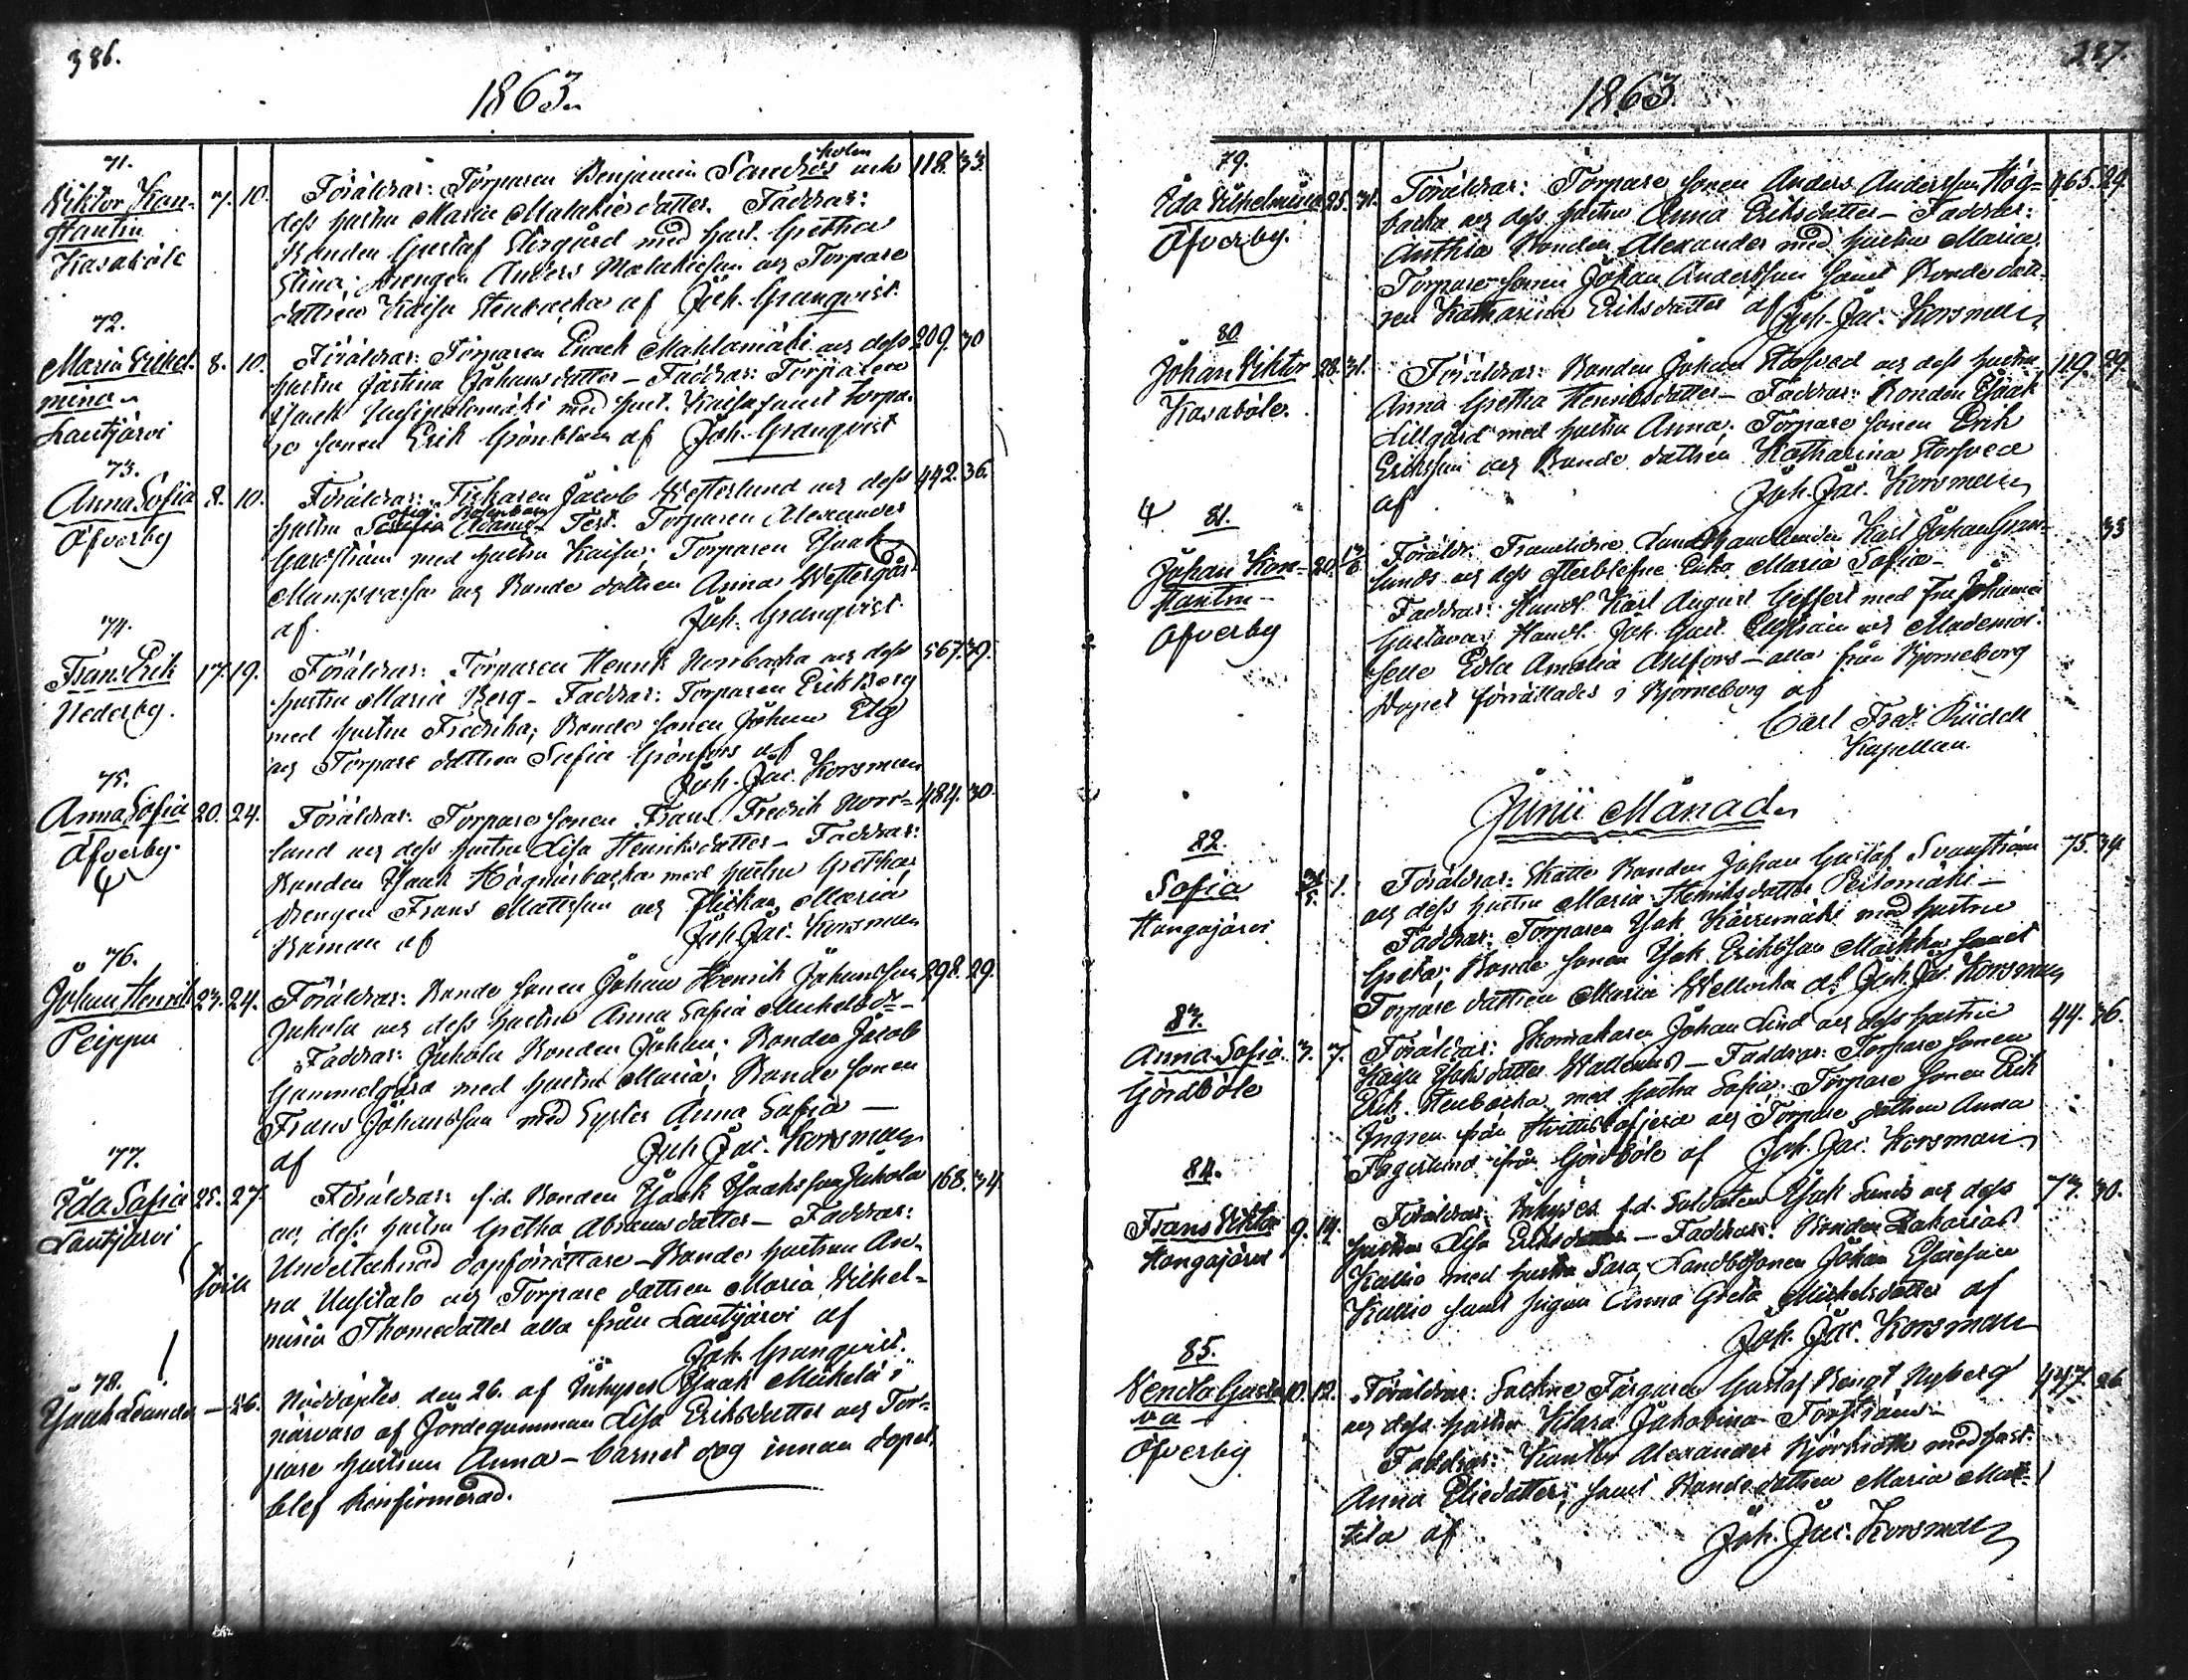 386.
1863.
71.
Viktor Kon-
stantin
Kasaböle
7. 10.
Föräldrar: Torparen Benjamin Sandholm och 118. 33.
dess hustru Maria Malakiedotter. Faddrar:
Bonden Gustaf Storgård med hust. Gretha
Stina; drengen Anders Malakieson och Torpare
dottren Kaisa Stenbacka af Joh. Granqvist.
72.
Maria Vilhel-
mina
Lautjärvi
8. 10.
Föräldrar: Torparen Enoch Mahlamäki och dess 209. 30
hustru Justina Johansdotter – Faddrar: Torparen
Isaak med hust. Kaisa samt torpa-
re sonen Erik Grönblom af Joh. Granqvist
73.
Anna Sofia
Öfverby
8. 10.
Föräldrar: Fiskaren Jacob Westerlund och dess 442. 36.
hustru Test. Torparen Alexander
med hustru Kaisa; Torparen Isaak
och Bonde dottren Anna Westergård
af Joh. Granqvist.
74.
Frans Erik
Nederby.
17. 19.
Föräldrar: Torparen Henrik Norrbacka och dess 567. 39.
hustru Maria Berg – Faddrar: Torparen Erik Berg
med hustru Fredrika; Bonde sonen Johan Elg
och Torpare dottren Sofia Grönfors af
Joh. Jac. Korsman
75.
Anna Sofia
Öfverby.
20. 24.
Föräldrar: Torpare sonen Frans Fredrik Norr- 484. 30.
lund och dess hustru Lisa Henriksdotter – Faddrar:
Bonden Isaak med hustru Gretha;
drengen Frans Mattsson och Flickan Maria
af Joh. Jac. Korsman
76.
Johan Henrik
Peippu
23. 24.
Föräldrar: Bonde sonen Johan Henrik Johansson 298. 29.
Juhola och dess hustru Anna Sofia Mickelsdr –
Faddrar: Juhola Bonden Johan; Bonden Jacob
Gammelgård med hustru Maria; Bonde sonen
Frans Johansson med Syster Anna Sofia –
af Joh. Jac. Korsman
77.
Ida Sofia
Lautjärvi
25. 27.
Föräldrar: f.d. Bonden Isaak Isaksson Juhola 168. 34.
och dess hustru Gretha Abramsdotter – Faddrar:
Undertecknad dopförrättare – Bonde hustrun An-
na Uusitalo och Torpare dottren Maria Vilhel-
mina Thomedotter alla från Lautjärvi af
Joh. Granqvist.
78.
Isaak Leander
– 26.
Nöddöptes den 26. af Inhyses Isaak Mickelä i
närvaro af Jordegumman Lisa Eriksdotter och Tor-
pare hustrun Anna – barnet dog innan dopet
blef konfirmerad.
387.
1863.
79.
Ida Vilhelmina
Öfverby.
25. 31.
Föräldrar: Torpare sonen Anders Andersson Hög- 465. 29.
backa och dess hustru Anna Eriksdotter – Faddrar:
Anthia Bonden Alexander med hustru Maria;
Torpare sonen Johan Andersson samt Bonde dott-
ren Katharina Eriksdotter af Joh. Jac. Korsman
80.
Johan Viktor
Kasaböle.
28. 31.
Föräldrar: Bonden Johan Storsved och dess hustru 119. 29.
Anna Gretha Henriksdotter – Faddrar: Bonden Isaak
Lillgård med hustru Anna; Torpare sonen Erik
Eriksson och Bonde dottren Katharina Storsved
af Joh. Jac. Korsman
81.
Johan Kon-
stantin –
Öfverby
20. 13/6
Föräldr: Framlidne Landthandlanden Karl Johan Gran- 33
lunds och dess efterblefne Enka Maria Sofia –
Faddrar: Handl. Karl August Geffert med Fru Johanna
Gustava; Handl. Joh. Gust. och Mademoi-
selle Edla Amalia – alla från Björneborg
Dopet förrättades i Björneborg af
Carl Fredr.
Kapellan.
Junii Månad.
82.
Sofia
Kangajärvi
31/5 1.
Föräldrar: Skatte Bonden Johan Gustaf Svanström 75. 34.
och dess hustru Maria Henriksdotter –
Faddrar: Torparen Isak med hustru
Greta; Bonde sonen Isak Eriksson samt
Torpare dottren Maria af Joh. Jac. Korsman
83.
Anna Sofia.
Gördböle
3. 7.
Föräldrar: Skomakaren Johan Lind och dess hustru 44. 36.
Kaisa Isaksdotter – Faddrar: Torpare sonen
Erik Stenbacka med hustru Sofia; Torpare sonen Erik
från och Torpare dottren Anna
Fagerlund från Gördböle af Joh. Jac. Korsman
84.
Frans Viktor
Kangajärvi
9. 14.
Föräldrar: Inhyses f.d. Soldaten Isak Lund och dess 73. 30.
hustru Lisa Eriksdotter – Faddrar: Bonden Zakarias
Kallio med hustru Sara; Landbosonen Johan
Kallio samt pigan Anna Greta Mickelsdotter af
Joh. Jac. Korsman
85.
Vendla Gusta-
va –
Öfverby
10. 12.
Föräldrar: Sockne Färgaren Gustaf Bengt Nyberg 447. 26
och dess hustru Klara Jakobina –
Faddrar: Alexander med hust.
Anna Eliedotter; samt Bonde dottren Maria Mat-
tila af Joh. Jac. Korsman